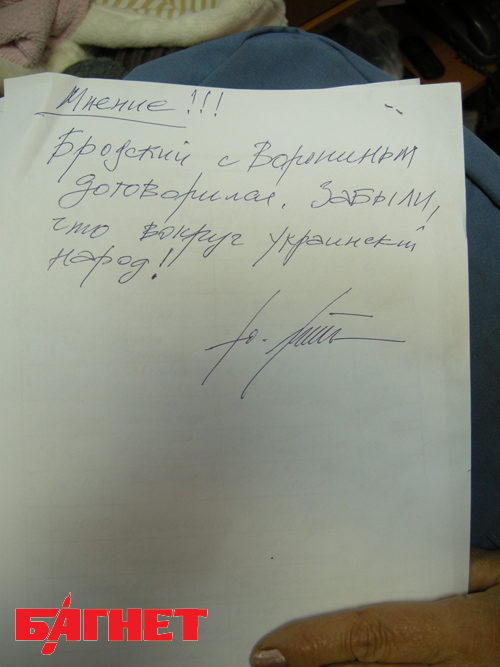 Мнение!!!
Бродский с Ворониным
договорился. Забыли,
что вокруг украинский
народ!!
БАГНЕТ